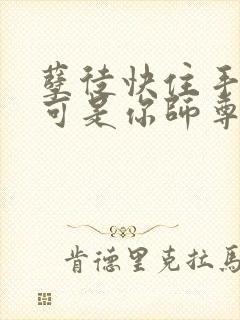 孽徒快住手
可是你師尊
肯德里克拉馬